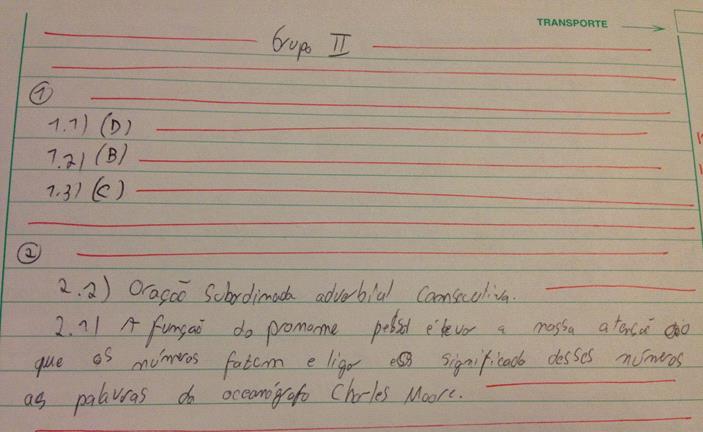 TRANSPORTE
Grupo II
1
1.1) (D)
1.2) (B)
1.3) (C)
2
2.2) Oração Subordinada adverbial Consecutiva.
2.1) A função do pronome é levar a nossa atenção ao
que os números fazem e ligar significado desses números
as palavras do oceanógrafo Charles Moore.